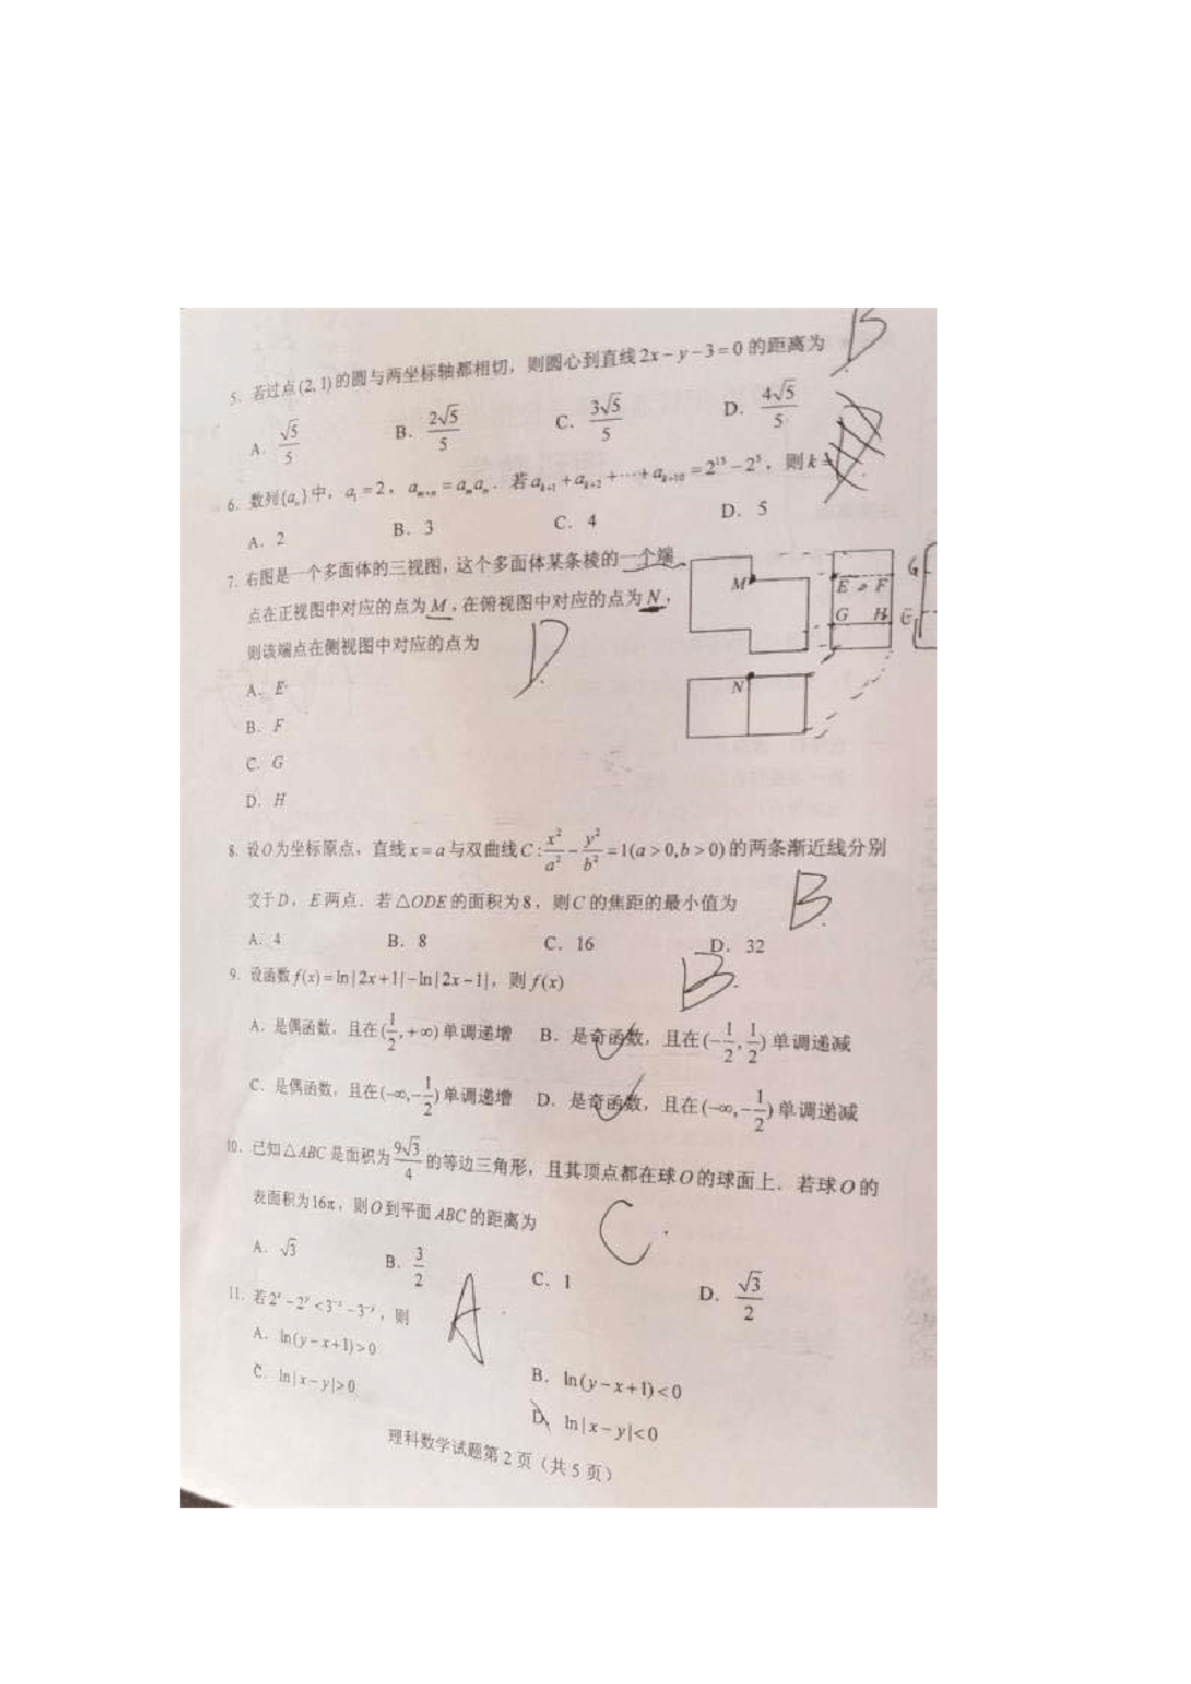 5. 若过点(2,1)的圆与两坐标轴都相切，则圆心到直线2x-y-3=0的距离为 B
A. √5/5 B. 2√5/5 C. 3√5/5 D. 4√5/5
6. 数列{aₙ}中，a₁=2，aₘ₊ₙ=aₘaₙ．若aₖ₊₁+aₖ₊₂+⋯+aₖ₊₁₀=2¹⁵-2⁵，则k=
A. 2 B. 3 C. 4 D. 5
7. 右图是一个多面体的三视图，这个多面体某条棱的一个端
点在正视图中对应的点为M，在俯视图中对应的点为N，
则该端点在侧视图中对应的点为 D
M E F G H
N
G
A. E
B. F
C. G
D. H
8. 设O为坐标原点，直线x=a与双曲线C: x²/a² - y²/b² =1(a>0,b>0)的两条渐近线分别
交于D，E两点．若△ODE的面积为8，则C的焦距的最小值为 B
A. 4 B. 8 C. 16 D. 32
9. 设函数f(x)=ln|2x+1|-ln|2x-1|，则f(x) B
A. 是偶函数，且在(1/2,+∞)单调递增 B. 是奇函数，且在(-1/2,1/2)单调递减
C. 是偶函数，且在(-∞,-1/2)单调递增 D. 是奇函数，且在(-∞,-1/2)单调递减
10. 已知△ABC是面积为9√3/4的等边三角形，且其顶点都在球O的球面上．若球O的
表面积为16π，则O到平面ABC的距离为 C
A. √3 B. 3/2 C. 1 D. √3/2
11. 若2ˣ-2ʸ<3⁻ˣ-3⁻ʸ，则 A
A. ln(y-x+1)>0 B. ln(y-x+1)<0
C. ln|x-y|>0 D. ln|x-y|<0
理科数学试题第2页（共5页）